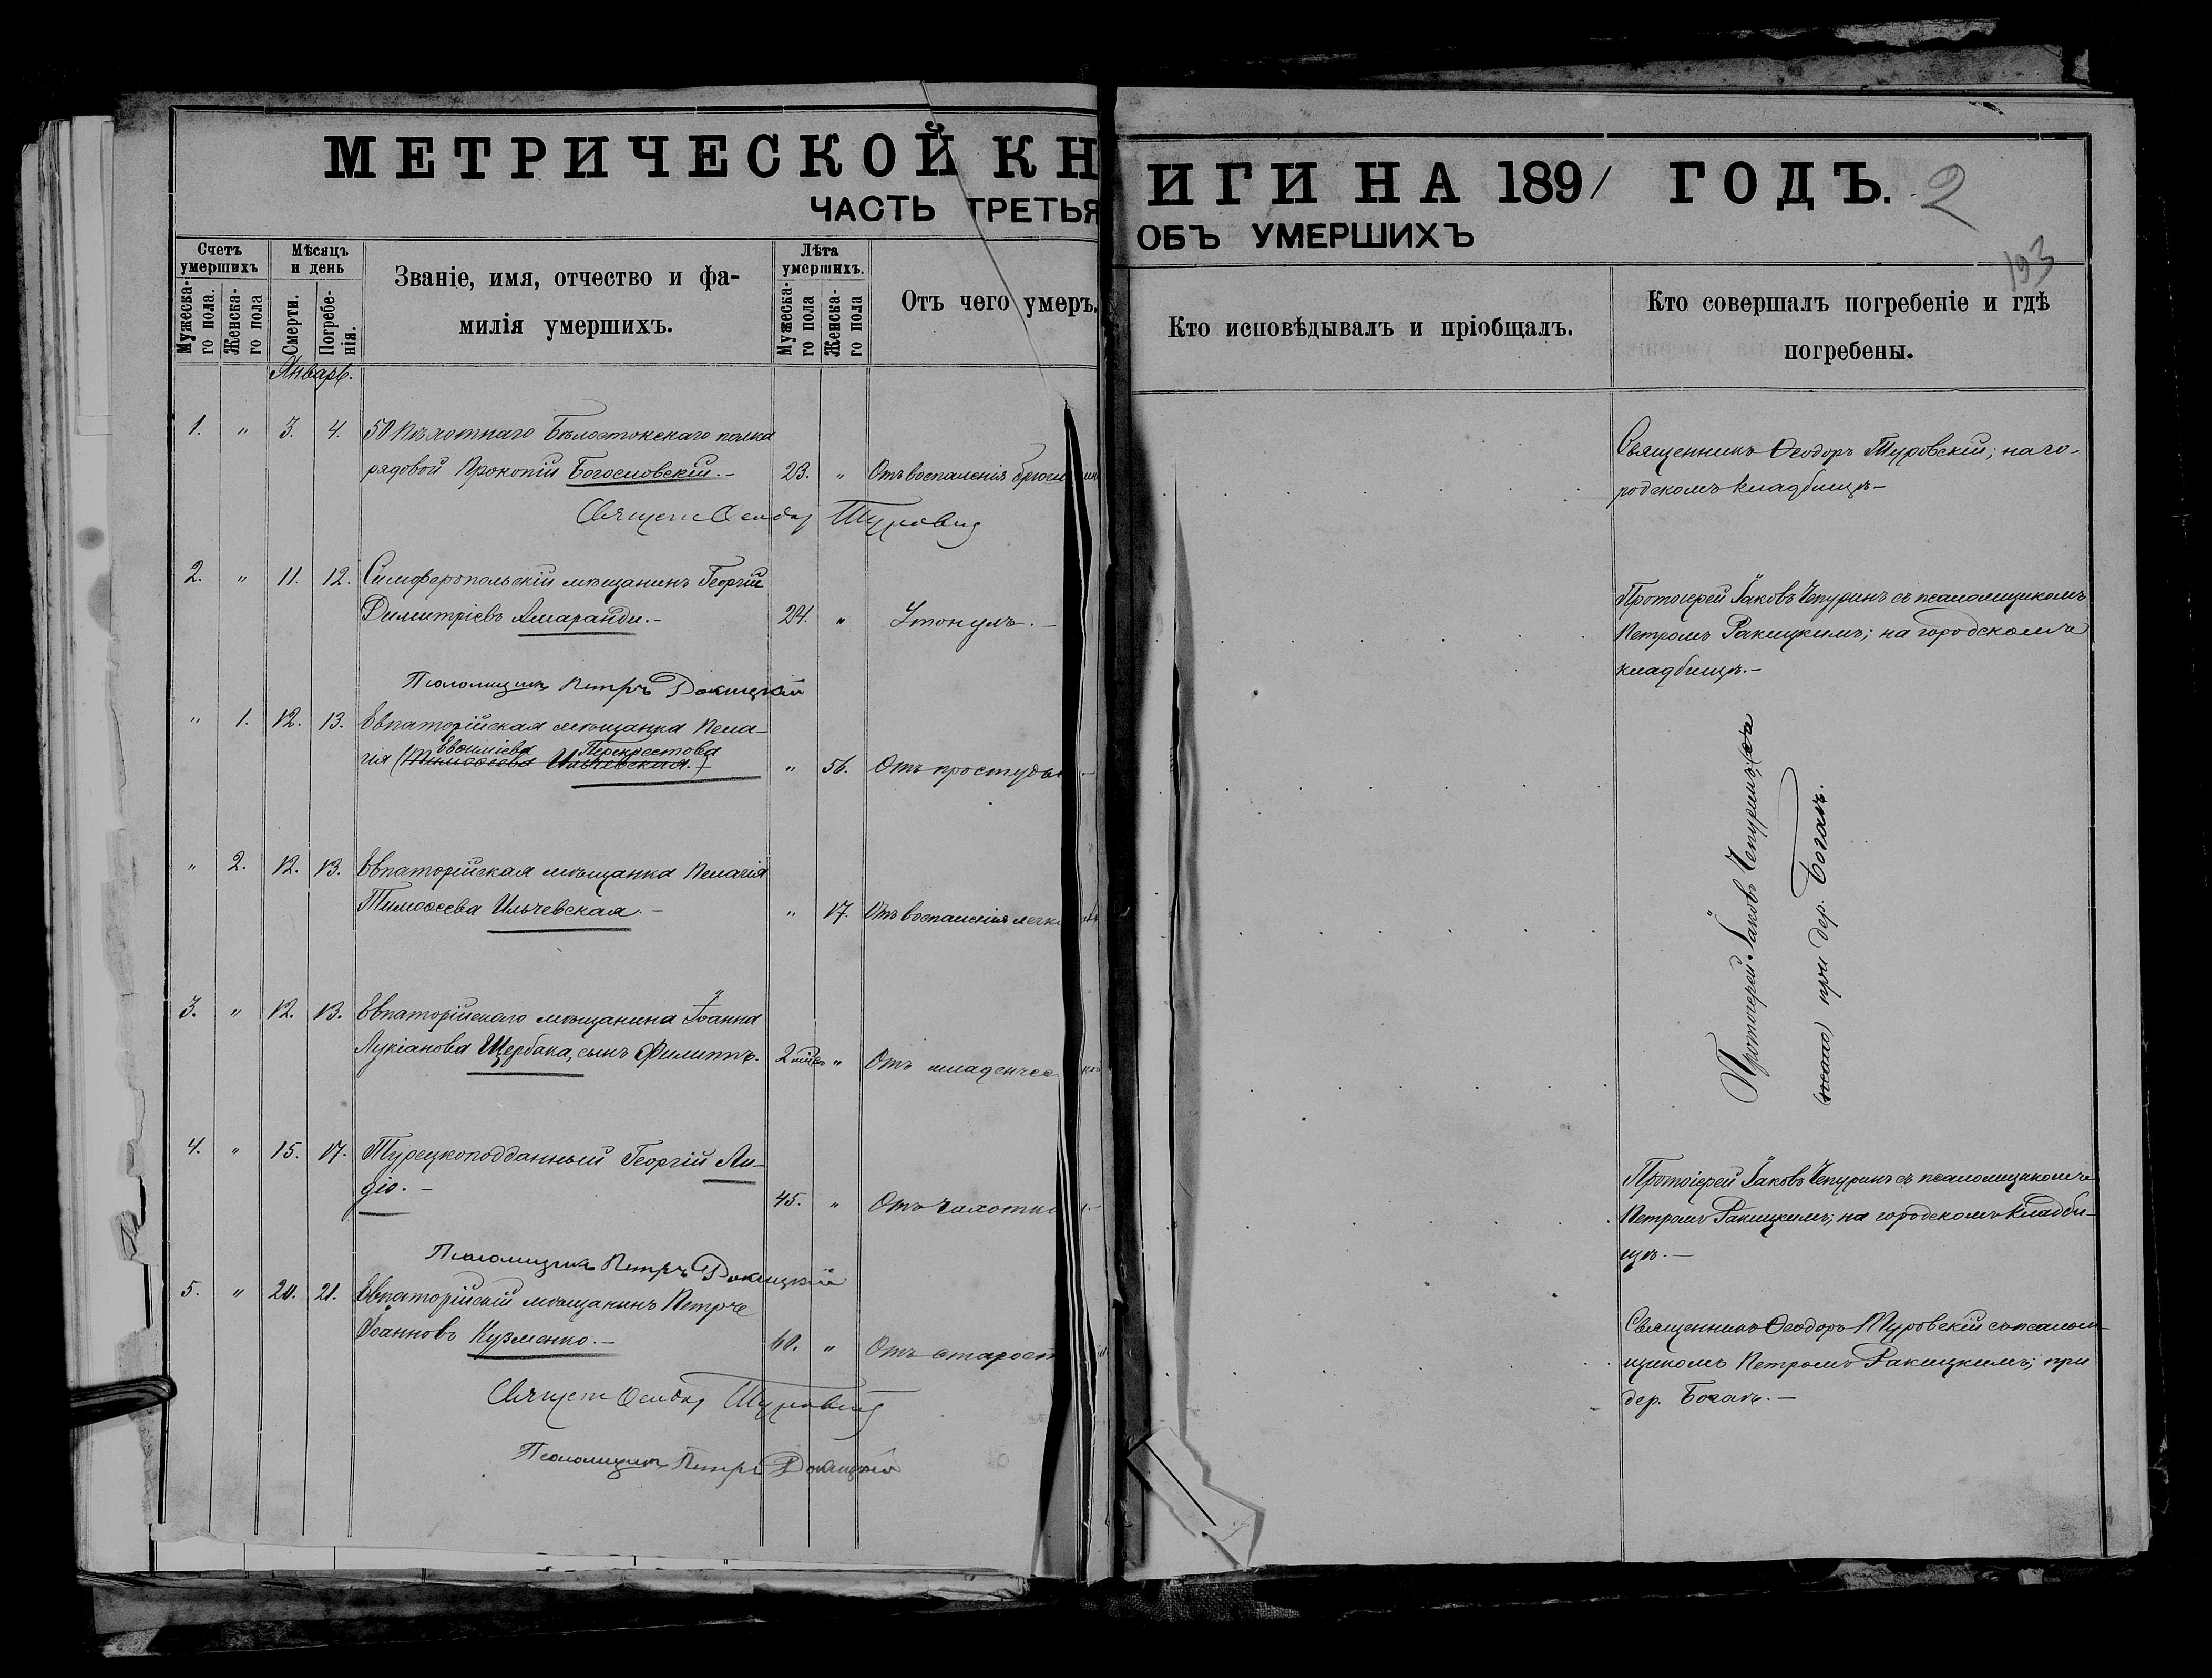 МЕТРИЧЕСКОЙ КНИГИ НА 1891 ГОДЪ.
2
ЧАСТЬ ТРЕТЬЯ ОБЪ УМЕРШИХЪ
193
Счетъ умершихъ
Мужеска-го пола.
Женска-го пола
Мѣсяцъ и день
Смерти.
Погребе-нія.
Званіе, имя, отчество и фа-
милія умершихъ.
Лѣта умершихъ.
Мужеска-го пола
Женска-го пола
Отъ чего умеръ.
Кто исповѣдывалъ и пріобщалъ.
Кто совершалъ погребеніе и гдѣ
погребены.
Январь.
1. " 3. 4. 50 пѣхотнаго Бѣлостокскаго полка
рядовой Прокопій Богословскій.– 23. " Отъ воспаленія
Священникъ Ѳеодоръ Туровскій; на го-
родскомъ кладбищѣ–
Священ Ѳеодор Туровскій
2. " 11. 12. Симферопольскій мѣщанинъ Георгій
Димитріевъ Амаранди.– 24. " Утонулъ.–
Протоіерей Іаковъ Чепуринъ съ псаломщикомъ
Петромъ Ракицкимъ; на городскомъ
кладбищѣ.–
Псаломщикъ Петръ Ракицкій
" 1. 12. 13. Евпаторійская мѣщанка Пела-
Евѳиміева Перекрестова
гія (Тимоѳеева Ильчевская.) " 56. Отъ простуды –
" 2. 12. 13. Евпаторійская мѣщанка Пелагія
Тимоѳеева Ильчевская.– " 17. Отъ воспаленія легк
3. " 12. 13. Евпаторійскаго мѣщанина Іоанна
Лукіанова Щербака, сынъ Филиппъ. 2 " Отъ младенчес
Протоіерей Іаковъ Чепуринъ;
при дер. Богай.
4. " 15. 17. Турецкоподданный Георгій Ли-
діо.– 45. " Отъ чахотки.–
Протоіерей Іаковъ Чепуринъ съ псаломщикомъ
Петромъ Ракицкимъ; на городскомъ кладби-
щѣ.–
Псаломщикъ Петръ Ракицкій
5. " 20. 21. Евпаторійскій мѣщанинъ Петръ
Іоанновъ Кузменко.– 60. " Отъ старост
Священникъ Ѳеодоръ Туровскій съ псалом-
щикомъ Петромъ Ракицкимъ; при
дер. Богай.–
Священ Ѳеодор Туровскій
Псаломщикъ Петръ Ракицкій